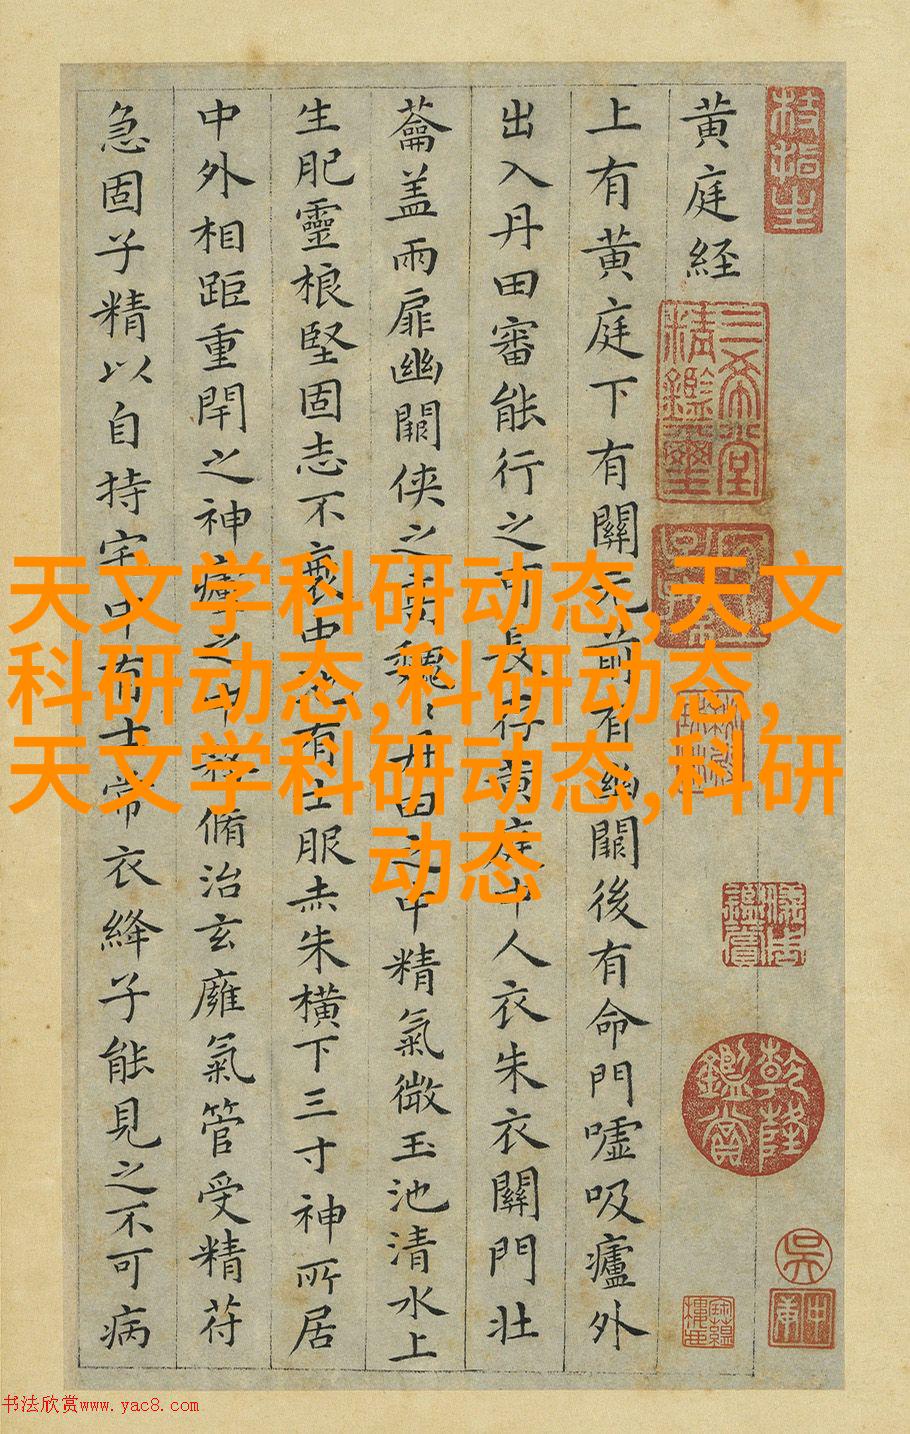 黄庭经
上有黄庭下有關元前有幽闕後有命門嘘吸廬外
出入丹田審能行之可長存黄庭中人衣朱衣關門壮
蘥盖兩扉幽闕侠之高魏〻丹田之中精氣微玉池清水上
生肥靈根堅固志不衰中池有士服赤朱横下三寸神所居
中外相距重閇之神廬之中務脩治玄廱氣管受精苻
急固子精以自持宅中有士常衣絳子能見之不可病
三希堂精鑑璽
乾隆鑑賞
吴
天文学科研动态,天文
科研动态,科研动态,
天文学科研动态,科研
动态
书法欣赏www.yac8.com